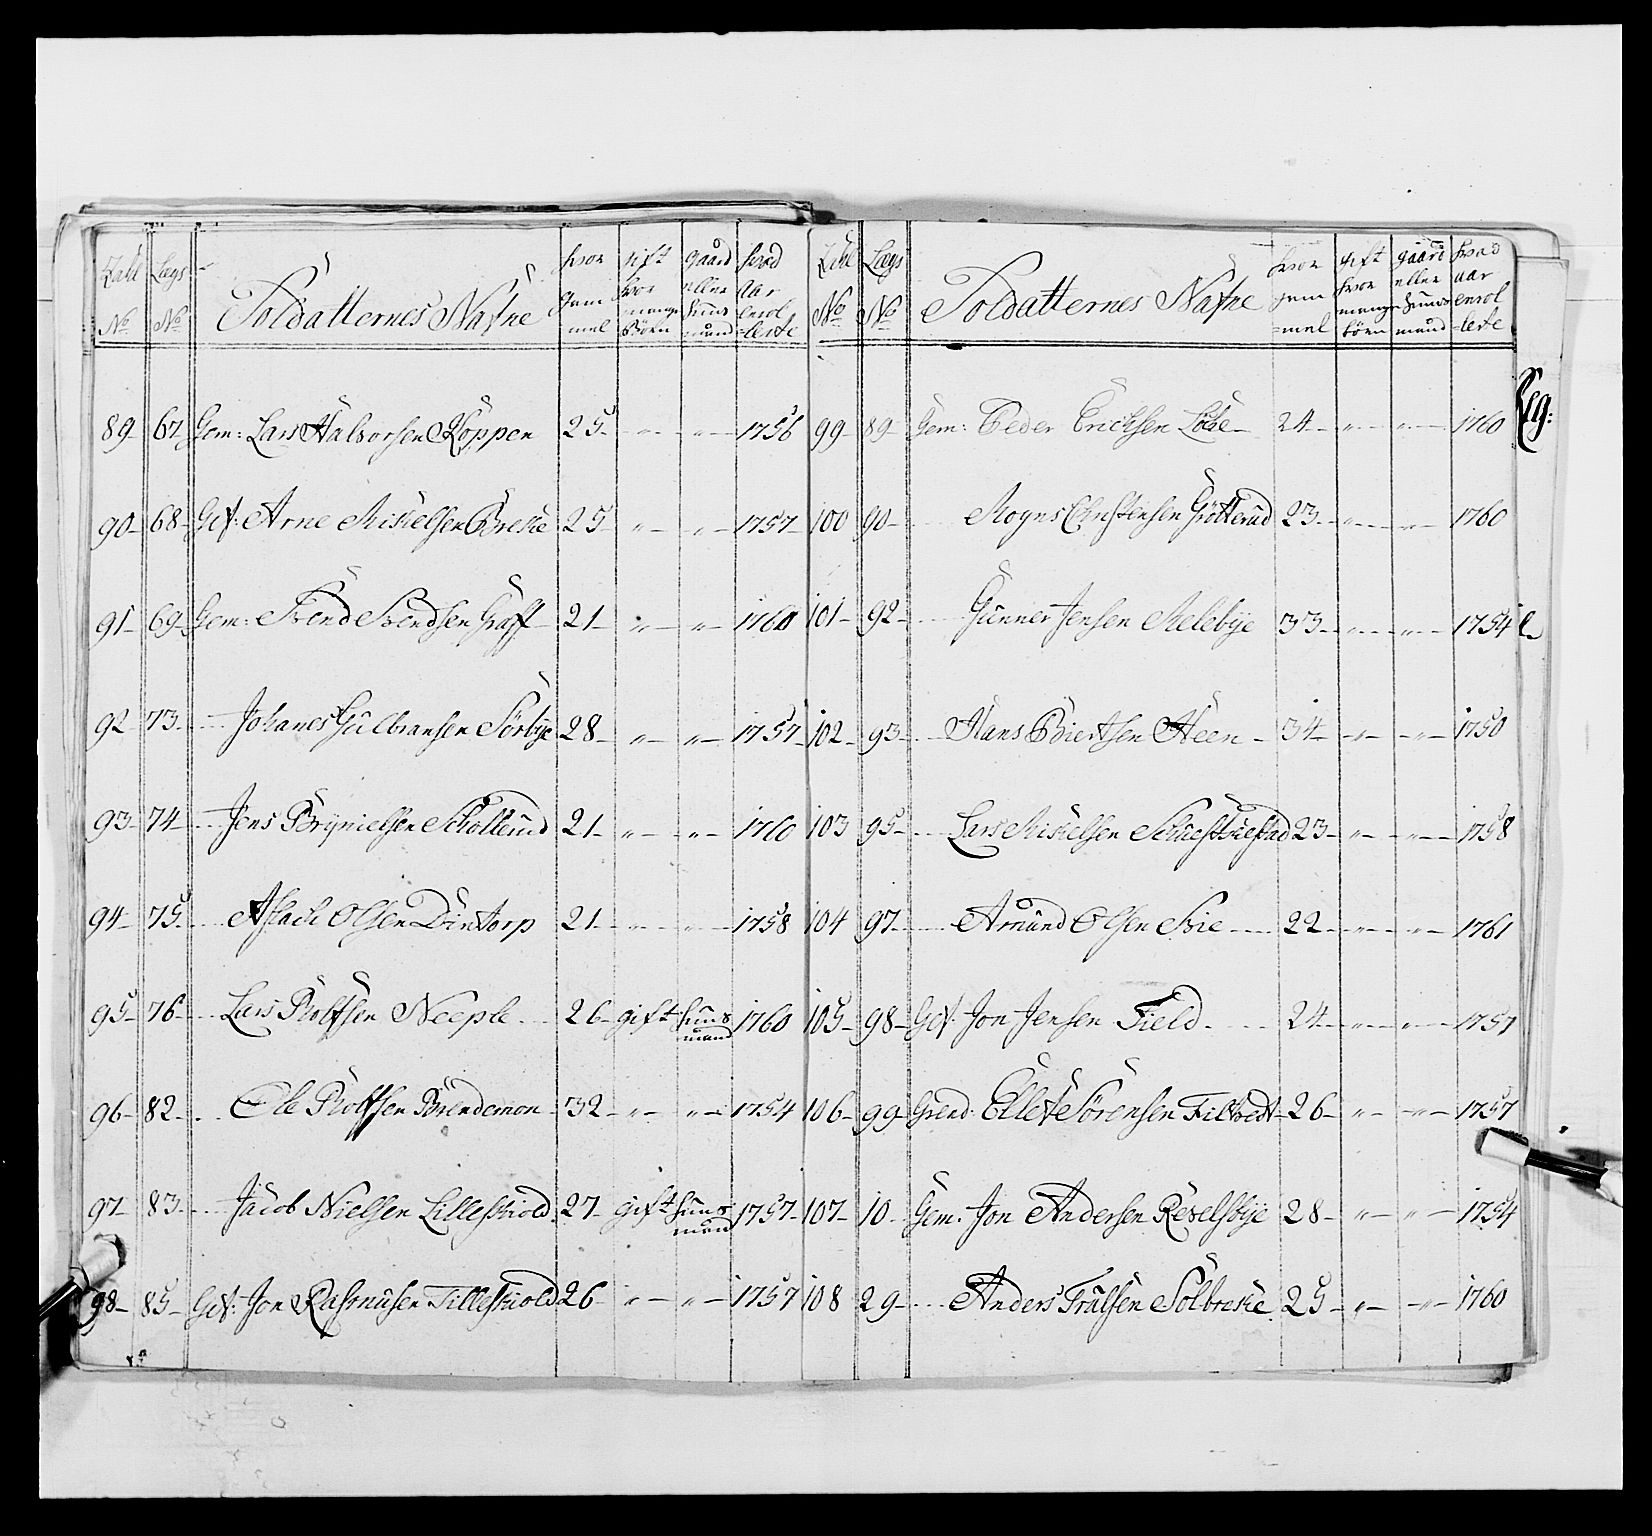 Zahl No | Lægs No | Soldatternes Nafne | hvor gammel | gift hvor mange Börn | gaard eller huusmand | hvad Aar enrollerte
89 67 Gem: Lars Halvorsen Koppen 25 " " 1756
90 68 Gef: Arne Mikelsen Breke 25 " " 1757
91 69 Gem: Svend Svendsen Graff 21 " " 1760
92 73 Johanes Gulbransen Sörbye 28 " " 1757
93 74 Jens Brynielsen Schollerud 21 " " 1760
94 75 Aslach Olsen Dintorp 21 " " 1758
95 76 Lars Rolfsen Neeple 26 gift huusmand 1760
96 82 Ole Rolfsen Brendemon 32 " " 1754
97 83 Jacob Nielsen Lilleskiold 27 gift huusmand 1757
98 85 Gef: Jon Rasmusen Tilleskiold 26 " " 1757
Zahl No | Lægs No | Soldatternes Nafne | hvor gammel | gift hvor mange börn | gaard eller huusmand | hvad aar enrollerte
99 89 Gem: Peder Erichsen Löke 24 " " 1760
100 90 Mogns Christensen Grötterud 23 " " 1760
101 92 Gunner Jensen Melebye 33 " " 1754
102 93 Hans Biertsen Heen 34 " " 1750
103 95 Lars Mikelsen 23 " " 1758
104 97 Amund Olsen Svie 22 " " 1761
105 98 Gef: Jon Jensen Field 24 " " 1757
106 99 Grend: Ellef Sörensen Filtvedt 26 " " 1757
107 10 Gem: Jon Andersen Revelsbye 28 " " 1754
108 29 Anders Trulsen Solbreke 25 " " 1760
Reg: